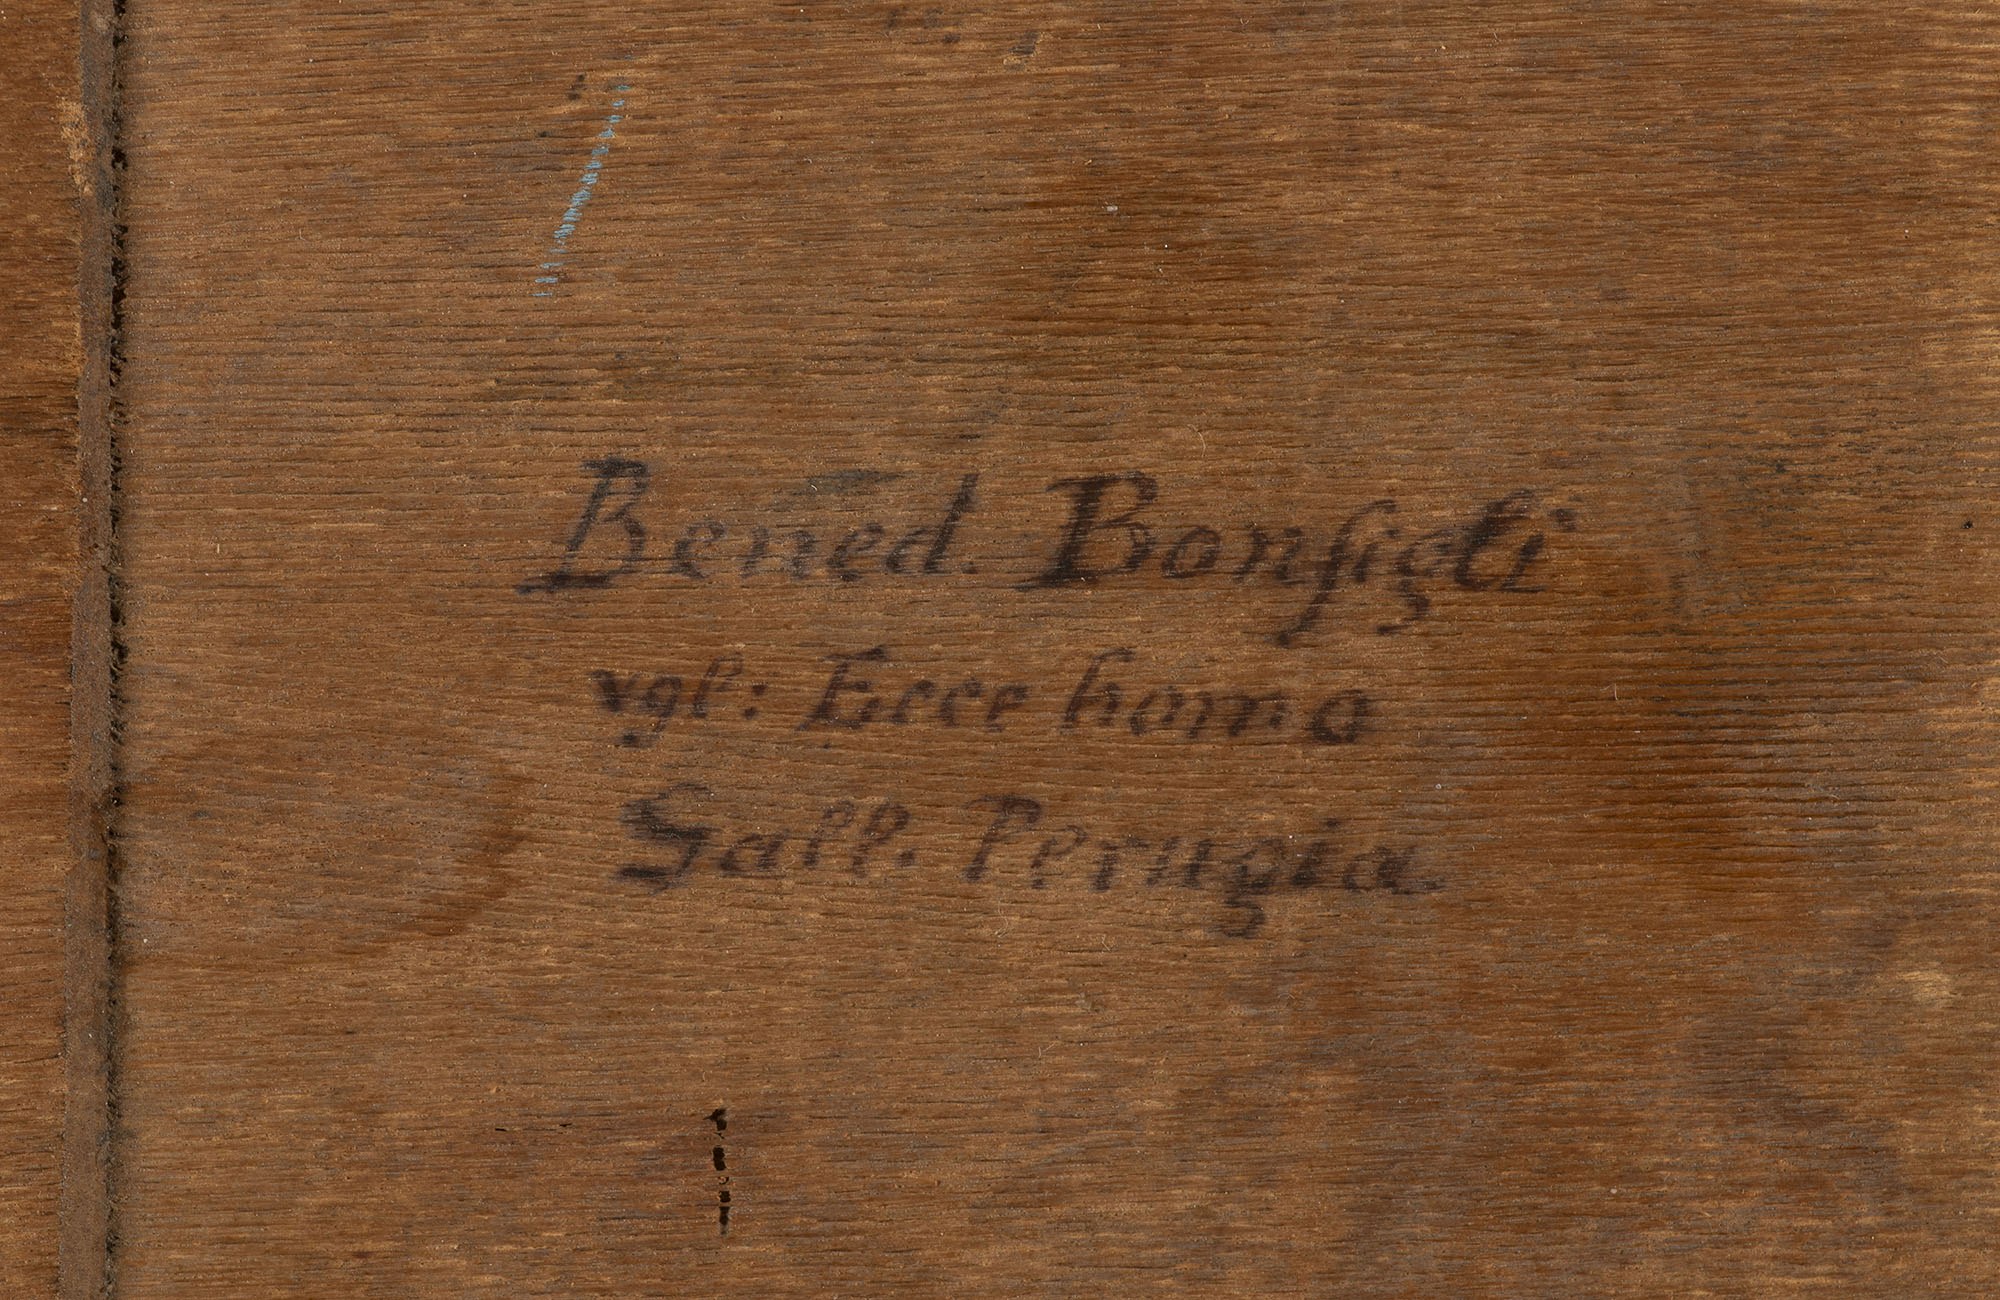 Bened. Bonfigli
vgl: Ecce homo
Gall. Perugia